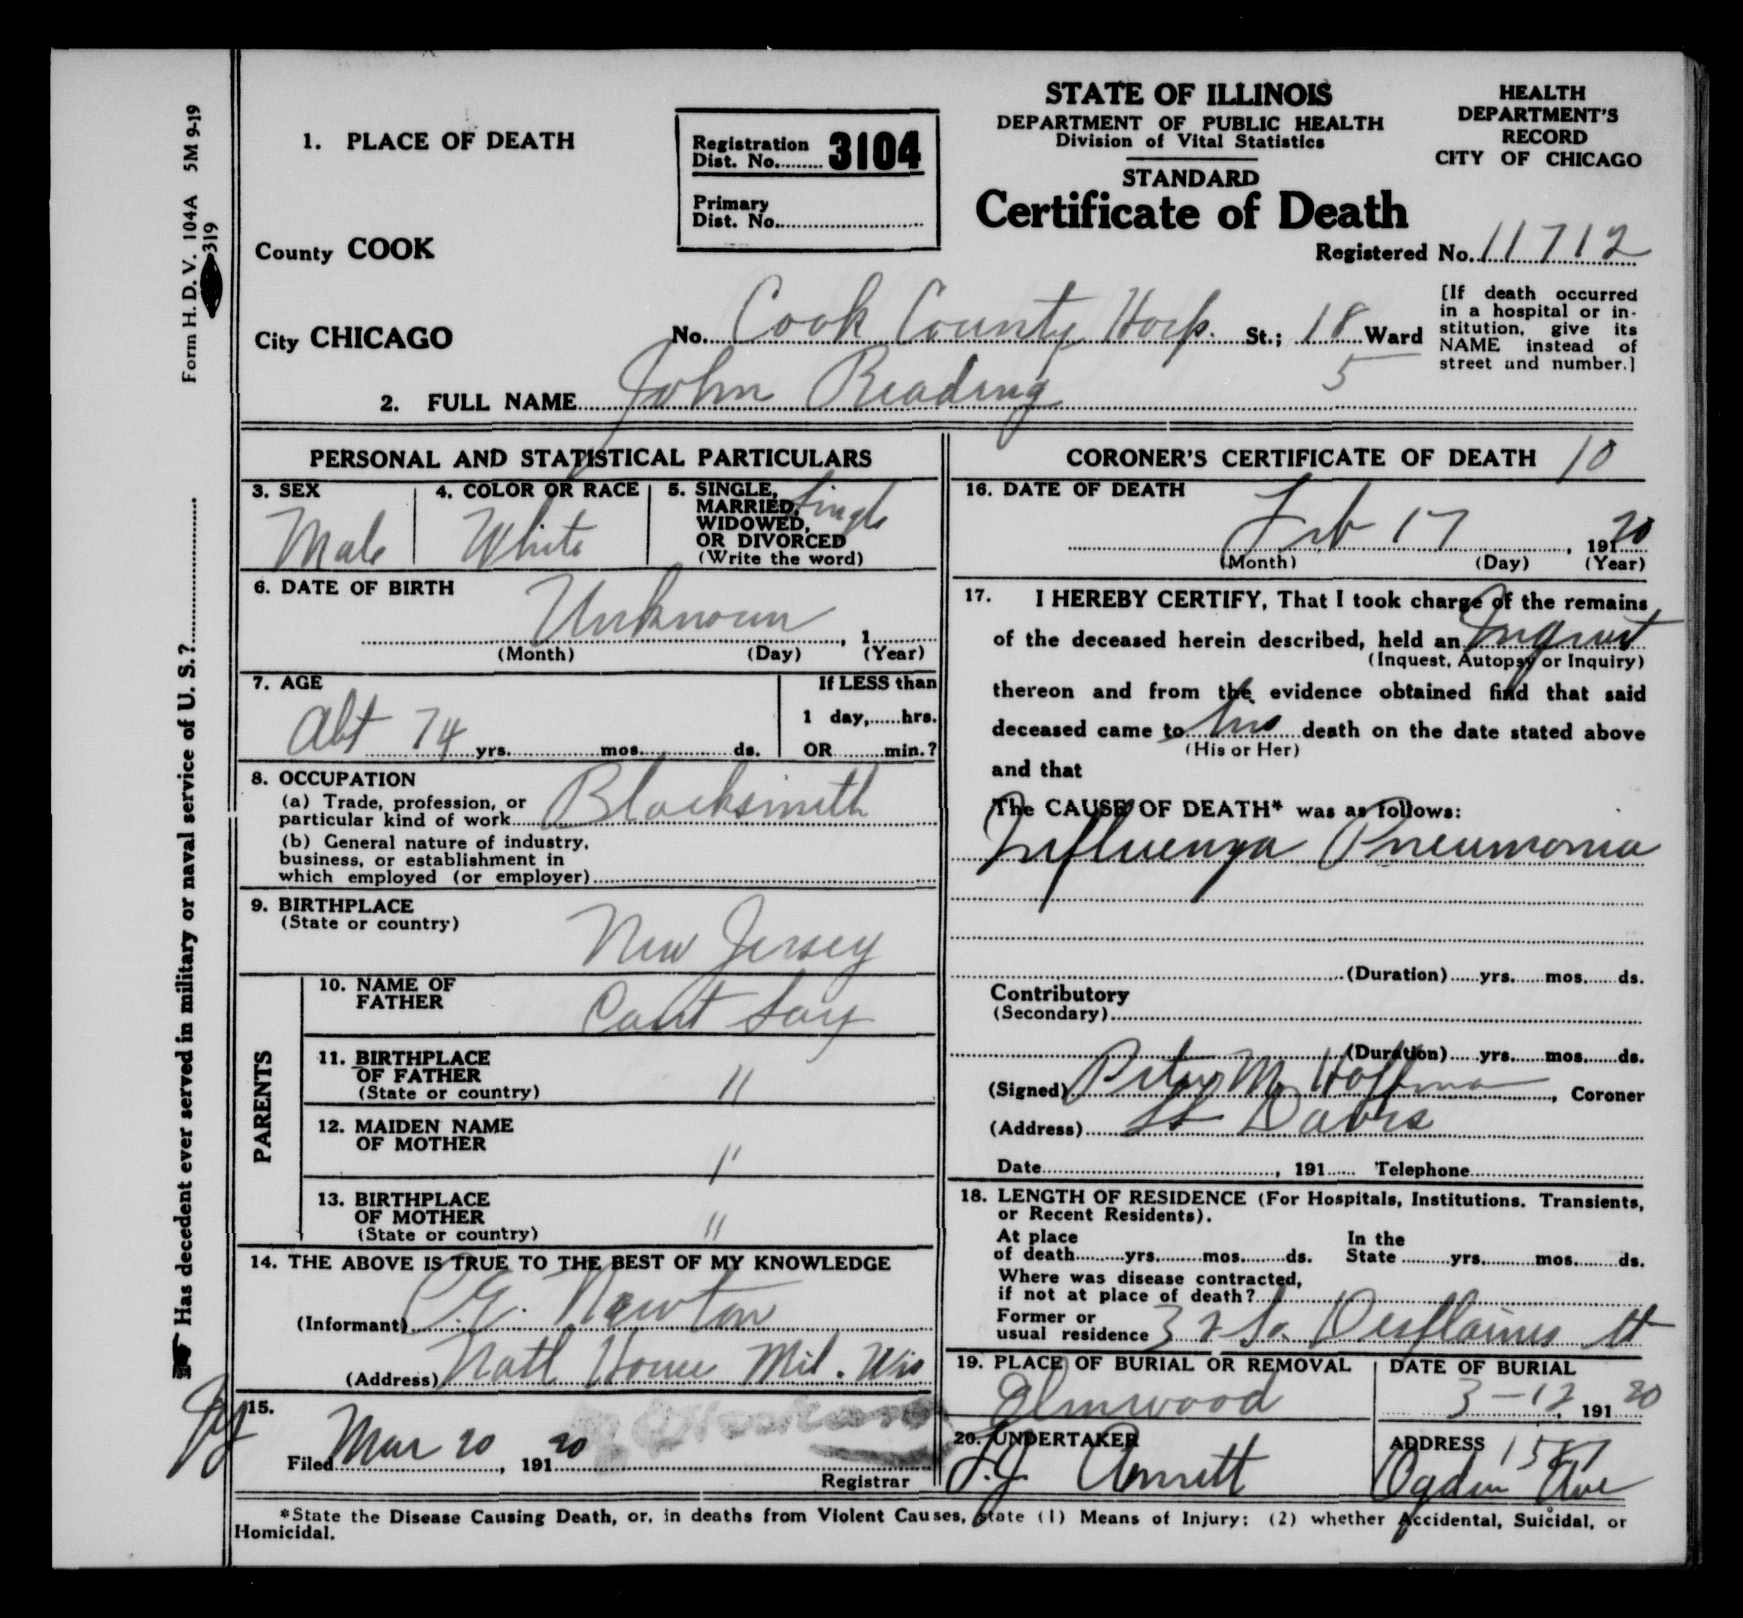 STATE OF ILLINOIS
DEPARTMENT OF PUBLIC HEALTH
Division of Vital Statistics
STANDARD
Certificate of Death
HEALTH
DEPARTMENT'S
RECORD
CITY OF CHICAGO
Form H. D. V. 104A 5M 9-19
319
Has decedent ever served in military or naval service of U. S.?
1. PLACE OF DEATH
Registration
Dist. No. 3104
Primary
Dist. No.
Registered No. 11712
County COOK
City CHICAGO No. Cook County Hosp. St.; 18 Ward
[If death occurred
in a hospital or in-
stitution, give its
NAME instead of
street and number.]
5
2. FULL NAME John Reading
PERSONAL AND STATISTICAL PARTICULARS
3. SEX
Male
4. COLOR OR RACE
White
5. SINGLE,
MARRIED,
WIDOWED,
OR DIVORCED
(Write the word)
Single
6. DATE OF BIRTH
Unknown , 1
(Month) (Day) (Year)
7. AGE
Abt 74 yrs. mos. ds.
If LESS than
1 day, hrs.
OR min.?
8. OCCUPATION
(a) Trade, profession, or
particular kind of work Blacksmith
(b) General nature of industry,
business, or establishment in
which employed (or employer)
9. BIRTHPLACE
(State or country)
New Jersey
PARENTS
10. NAME OF
FATHER
Cant Say
11. BIRTHPLACE
OF FATHER
(State or country) "
12. MAIDEN NAME
OF MOTHER
"
13. BIRTHPLACE
OF MOTHER
(State or country) "
14. THE ABOVE IS TRUE TO THE BEST OF MY KNOWLEDGE
(Informant) C. G. Newton
(Address) Natl Home Mil. Wis
15.
Filed Mar 20, 1920
Registrar
CORONER'S CERTIFICATE OF DEATH 10
16. DATE OF DEATH
Feb 17, 19120
(Month) (Day) (Year)
17. I HEREBY CERTIFY, That I took charge of the remains
of the deceased herein described, held an Inquest
(Inquest, Autopsy or Inquiry)
thereon and from the evidence obtained find that said
deceased came to his death on the date stated above
(His or Her)
and that
The CAUSE OF DEATH* was as follows:
Influenza Pneumonia
(Duration) yrs. mos. ds.
Contributory
(Secondary)
(Duration) yrs. mos. ds.
(Signed) Peter M. Hoffman, Coroner
(Address) Davis
Date , 191 Telephone
18. LENGTH OF RESIDENCE (For Hospitals, Institutions, Transients,
or Recent Residents).
At place
of death yrs. mos. ds.
In the
State yrs. mos. ds.
Where was disease contracted,
if not at place of death?
Former or
usual residence 32 So. Desplaines St
19. PLACE OF BURIAL OR REMOVAL
Elmwood
DATE OF BURIAL
3-12 19120
20. UNDERTAKER
ADDRESS
Ogden Ave
*State the Disease Causing Death, or, in deaths from Violent Causes, state (1) Means of Injury; (2) whether Accidental, Suicidal, or
Homicidal.